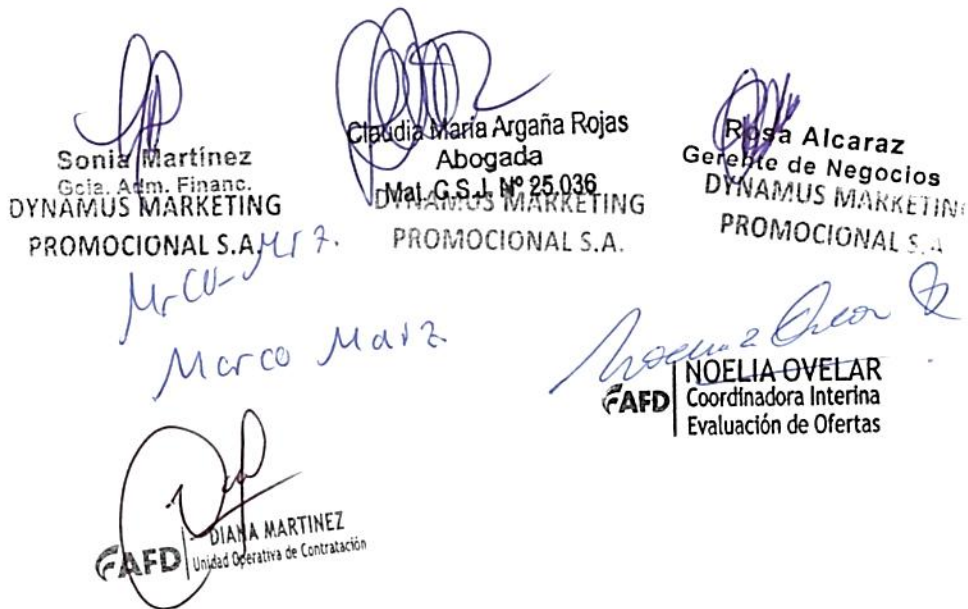 Sonia Martínez
Gcia. Adm. Financ.
DYNAMUS MARKETING
PROMOCIONAL S.A.
Claudia María Argaña Rojas
Abogada
Mat. C.S.J. Nº 25.036
DYNAMUS MARKETING
PROMOCIONAL S.A.
Rosa Alcaraz
Gerente de Negocios
DYNAMUS MARKETING
PROMOCIONAL S.A
Marco
NOELIA OVELAR
AFD
Coordinadora Interina
Evaluación de Ofertas
DIANA MARTINEZ
AFD
Unidad Operativa de Contratación